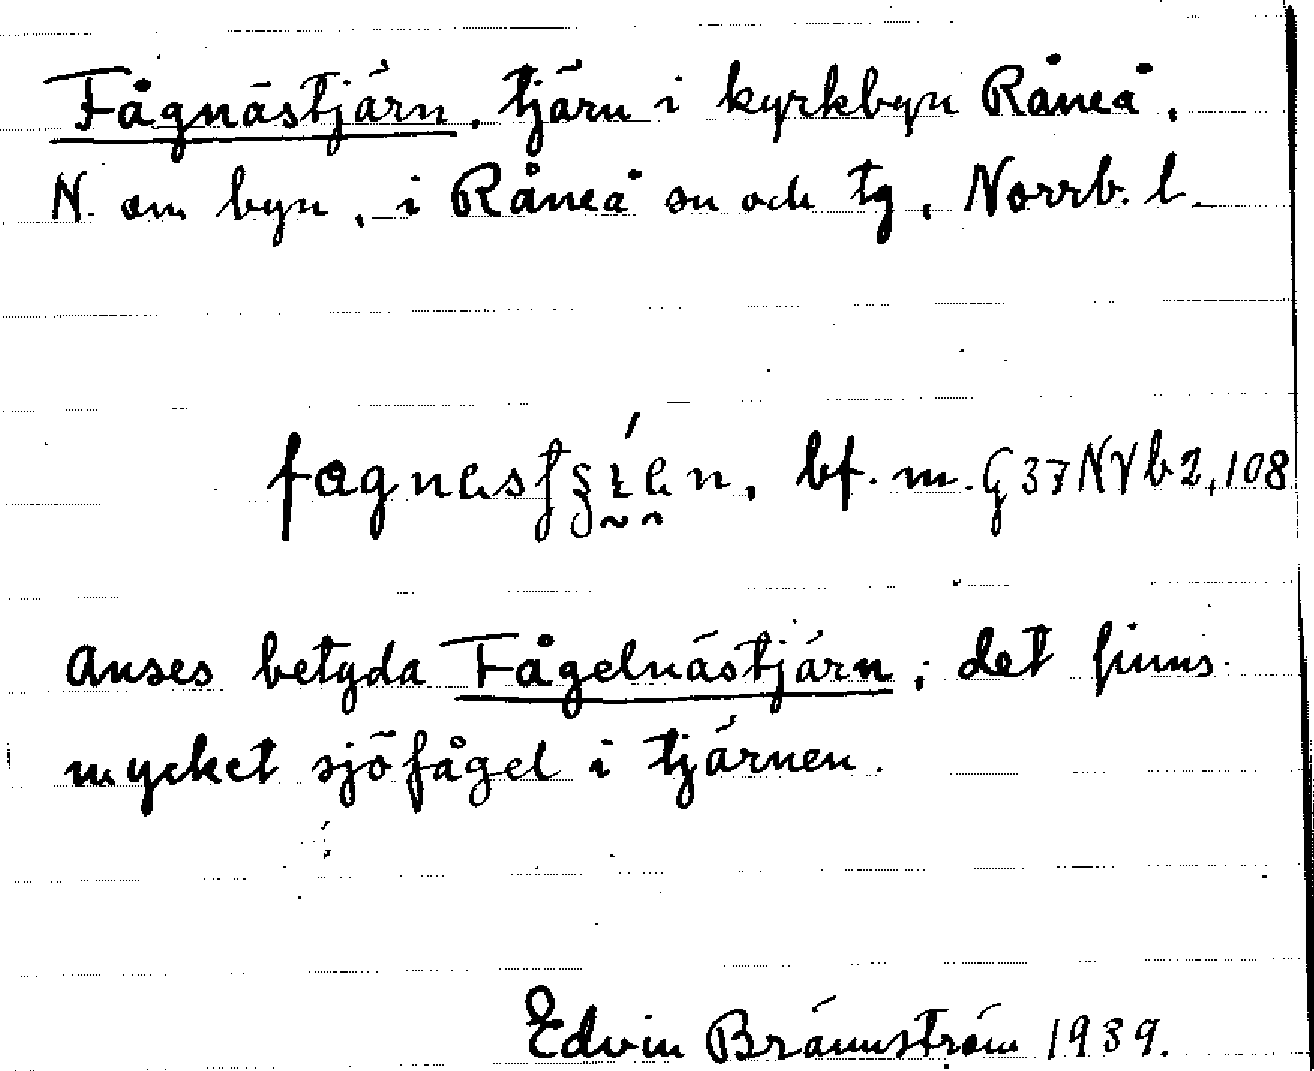 Fågnästjärn, tjärn i kyrkbyn Råneå,
N. om byn, i Råneå sn och tg, Norrb. l.
bf. m. G37 NVb2,108
Anses betyda Fågelnästjärn; det finns
mycket sjöfågel i tjärnen.
Edvin Brännström 1939.